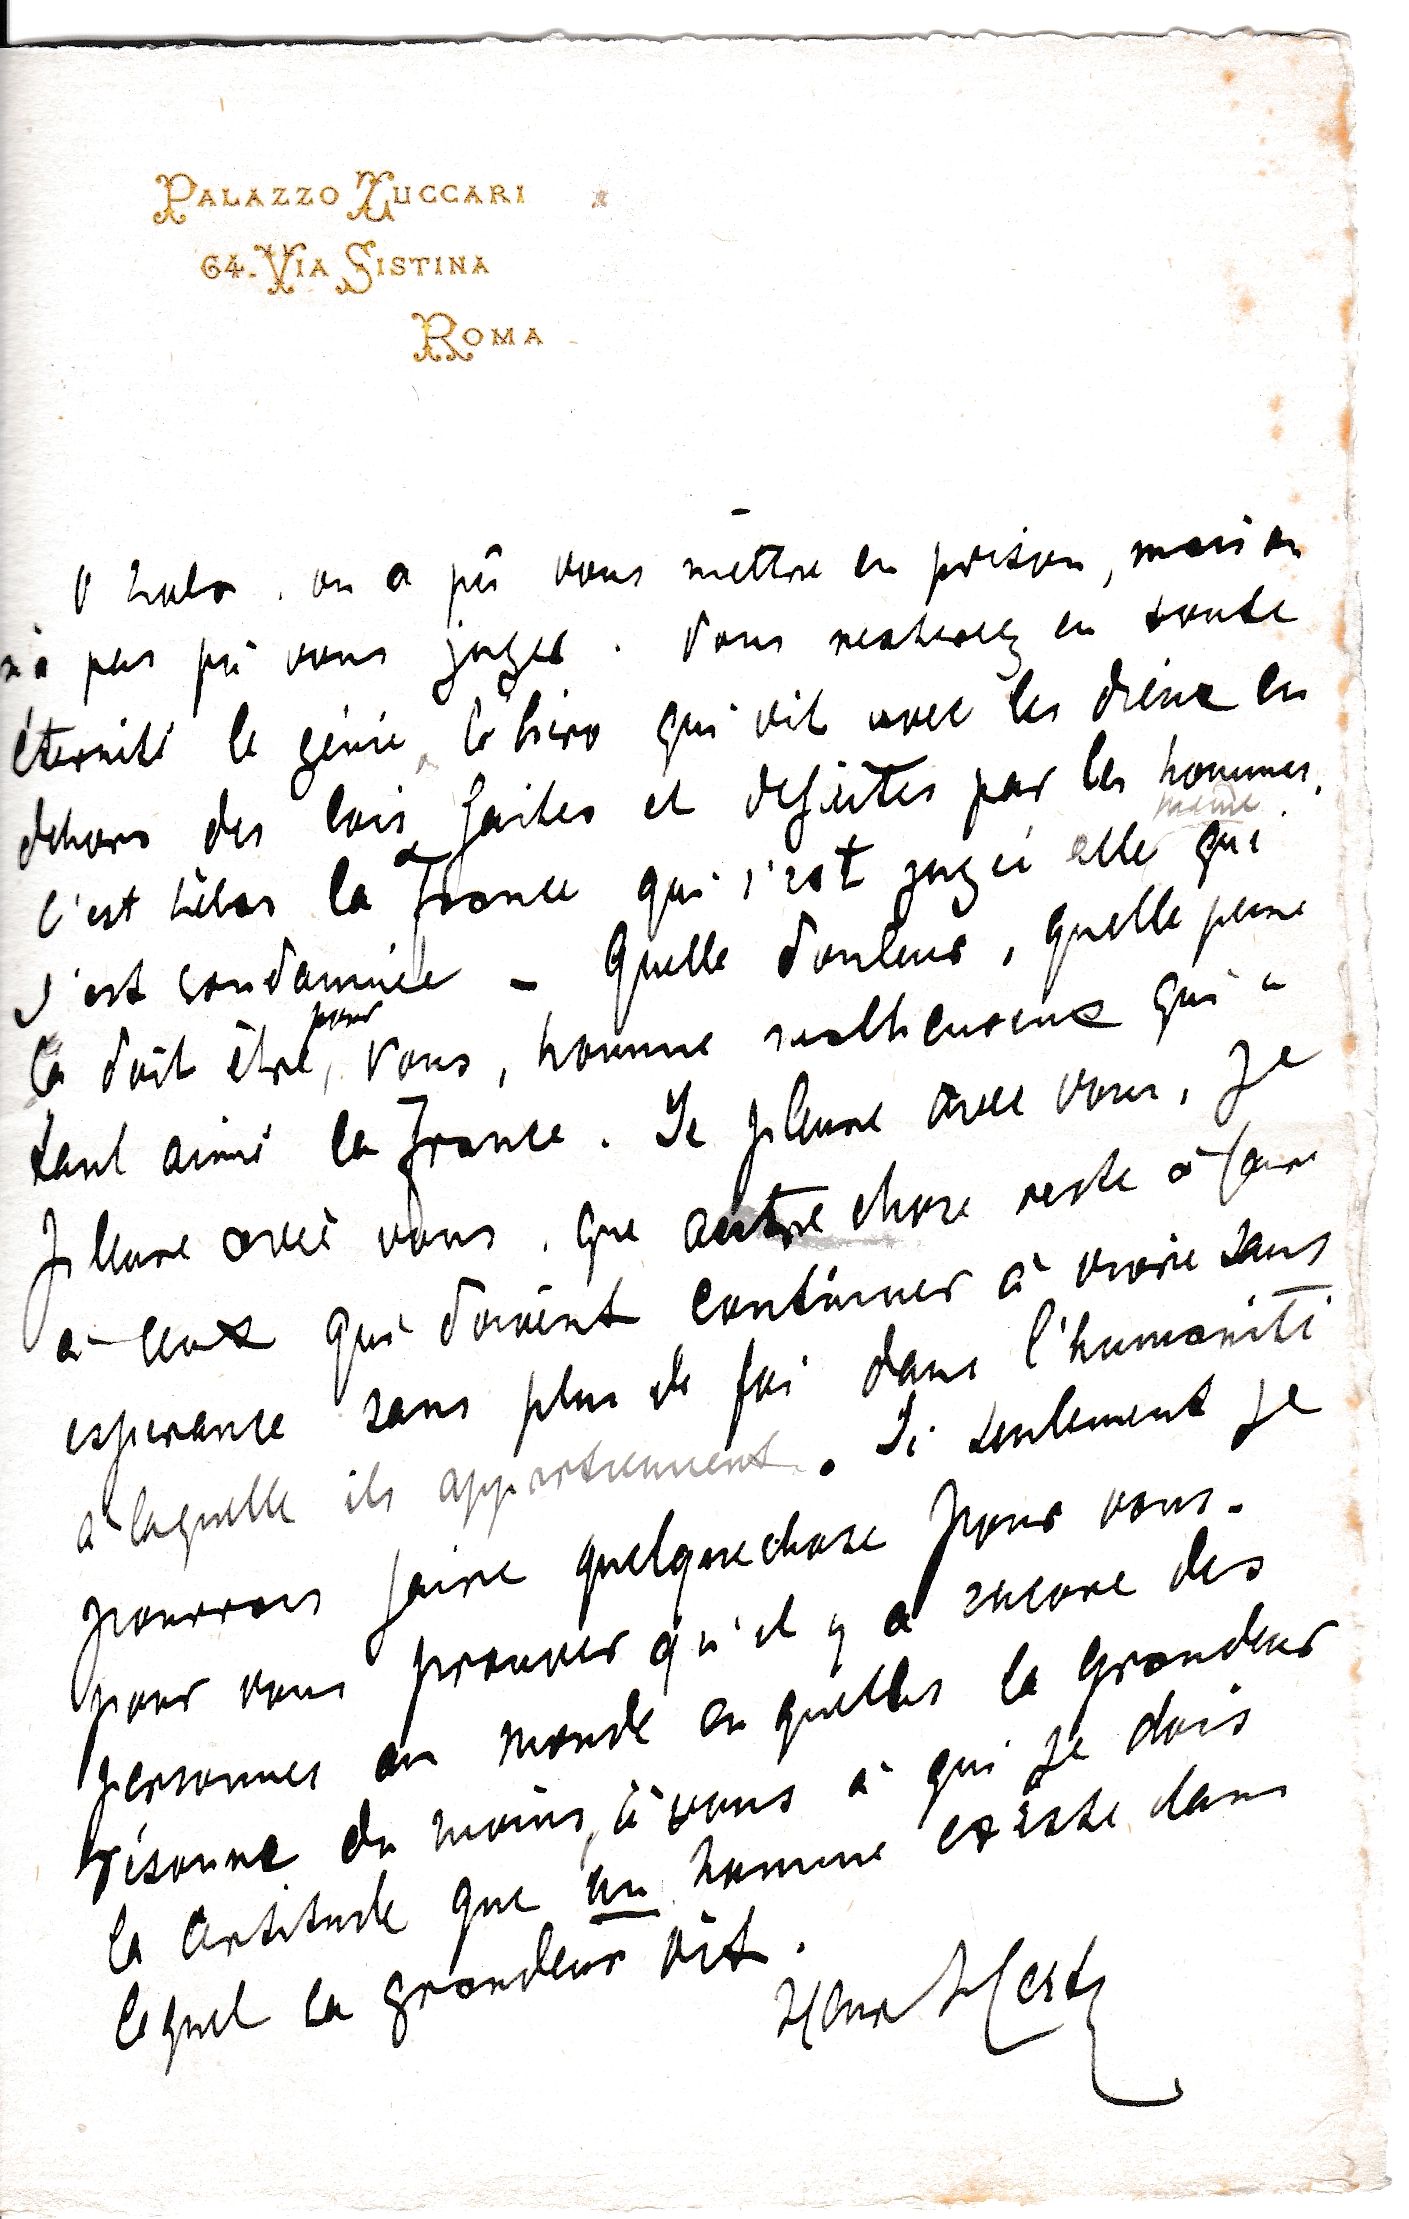 PALAZZO ZUCCARI
64. VIA SISTINA
ROMA
O Zola. on a pû vous mettre en prison, mais on
n'a pas pû vous juger. Vous resterez en toute
éternité le génie, le héro qui vit avec les dieux en
dehors des lois faites et defaites par les hommes.
C'est hélas la France qui s'est jugée elle même qui
s'est condamnée - Quelle douleur, quelle peine
ça doit être, pour vous, homme malheureux qui a
tant aimé la France. Je pleure avec vous, je
pleure avec vous. que autre chose reste à faire
à ceux qui doivent continuer à vivre sans
esperance sans plus de foi dans l'humanité
à laquelle ils appartiennent. Si seulement je
pourrais faire quelquechose pour vous.
pour vous prouver qu'il y a encore des
personnes au monde en quelles la grandeur
résonne du moins, à vous à qui je dois
la certitude que un homme existe dans
lequel la grandeur vit.
Henr Hertz